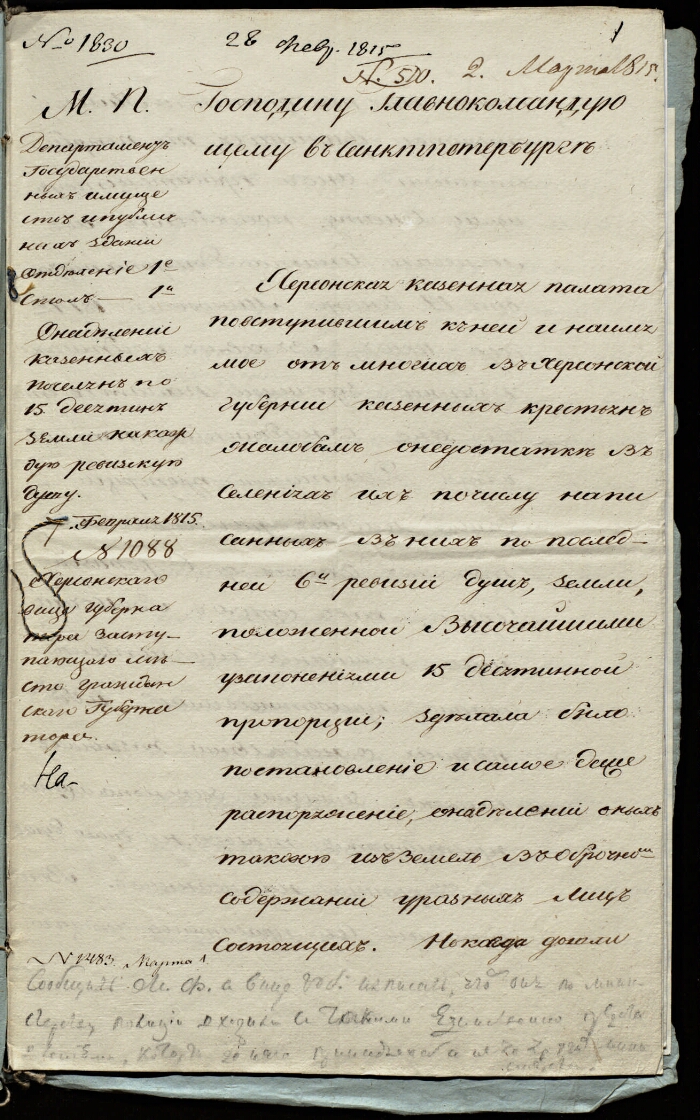 № 1830
28 Февр. 1815
1
№. 510. 2. Марта 1815.
М. П.
Департаментъ
Государствен
ныхъ имуще
ствъ и публич
ныхъ зданій
Отдѣленіе 1е
Столъ 1й
О надѣленіи
казенныхъ
поселянъ по
15 десятинъ
земли на каж
дую ревизскую
душу.
7. Февраля 1815.
№ 1088
Херсонскаго
вице губерна
тора засту-
пающаго мѣ-
сто граждан
скаго Губерна
тора.
На-
Господину Главнокомандую
щему въ Санктпетербургѣ
Херсонская казенная палата
по вступившимъ къ ней и наи
мое отъ многихъ въ Херсонской
губерніи казенныхъ крестьянъ
жалобамъ о недостаткѣ въ
селеніяхъ ихъ по числу напи
санныхъ въ нихъ по послѣд-
ней 6й ревизіи душъ, земли,
положенной Высочайшими
узаконеніями 15 десятинной
пропорціи; здѣлала было
постановленіе и самое даже
распоряженіе, о надѣленіи оныхъ
таковою изъ земель въ оброчномъ
содержаніи у разныхъ лицъ
состоящихъ. Но когда дошли
№ 1483. Марта 1
Сообщить М. Ф. а Вице Губ. написать, что онъ по мини-
стерству полиціи входилъ съ